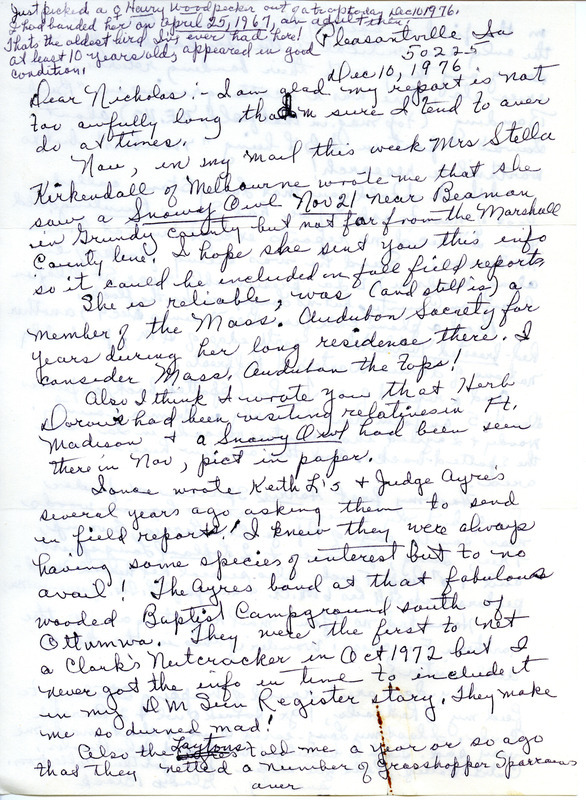 Just picked a ♀ Hairy Woodpecker out of a trap today Dec 10 1976.
I had banded her on April 25, 1967, an adult then!
Thats the oldest bird I've ever had here!
at least 10 years old, appeared in good
condition.
Pleasantville Ia
50225
Dec 10, 1976
Dear Nicholas:- I am glad my report is not
too awfully long tho I'm sure I tend to over
do at times.
Now, in my mail this week Mrs Stella
Kirkendall of Melbourne wrote me that she
saw a Snowy Owl Nov 21 near Beaman
in Grundy County but not far from the Marshall
County line. I hope she sent you this info
so it could be included in fall field reports.
She is reliable, was (and still is) a
member of the Mass. Audubon Society for
years during her long residence there. I
consider Mass. Audubon the tops!
Also I think I wrote you that Herb
Dorow's had been visiting relatives in Ft.
Madison + a Snowy Owl had been seen
there in Nov, pict in paper.
I once wrote Keith L's + Judge Ayre's
several years ago asking them to send
in field reports! I knew they were always
having some species of interest but to no
avail! The Ayres band at that fabulous
wooded Baptist Campground south of
Ottumwa. They were the first to net
a Clark's Nutcracker in Oct 1972 but I
never got the info in time to include it
in my DM Sun Register story. They make
me so durned mad!
Also the Laytons told me a year or so ago
that they netted a number of Grasshopper Sparrows
over